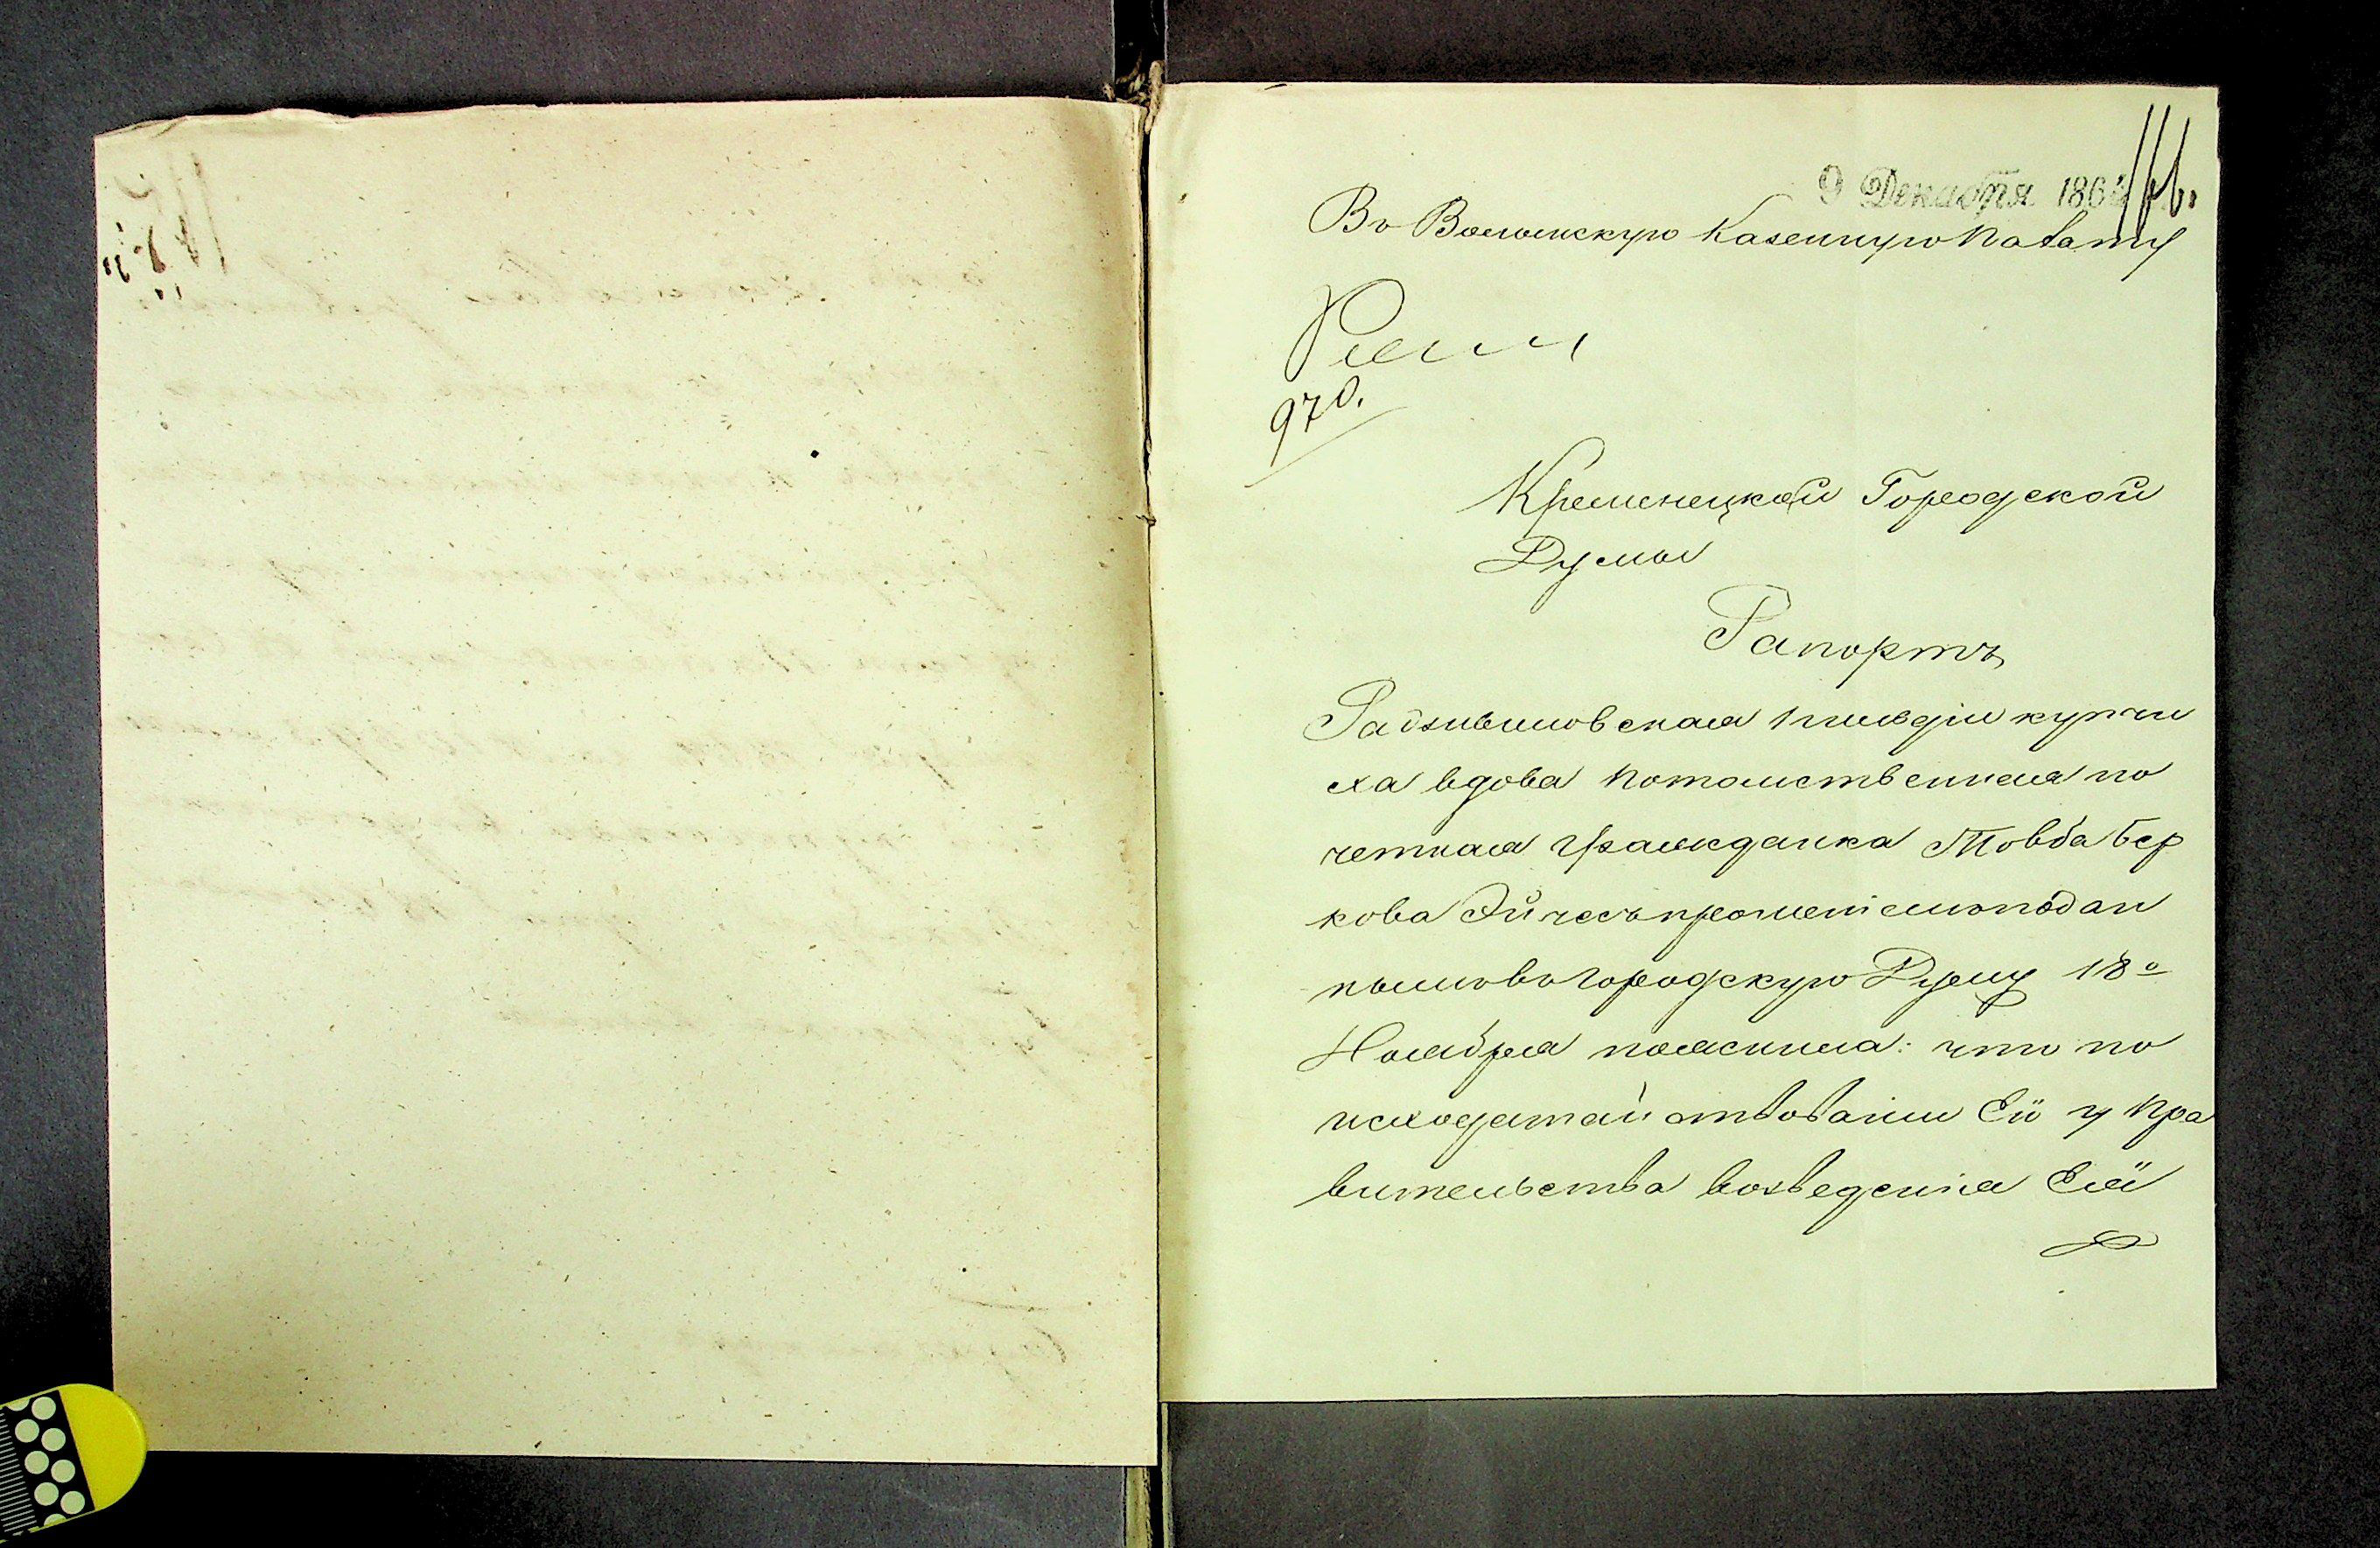 9 Декабря 186
Въ Волынскую Казенную Палату
970.
Кременецкой Городской
Думы
Рапортъ
Радзивиловская 1 гильдіи купчи
ха вдова потомственная по
четная гражданка Товба Бер
кова прошеніемъ подан
нымъ въ Городскую Думу 18º
Ноября пояснила: что по
исходатайствованіи Ей у Пра
вительства возведенія Ея